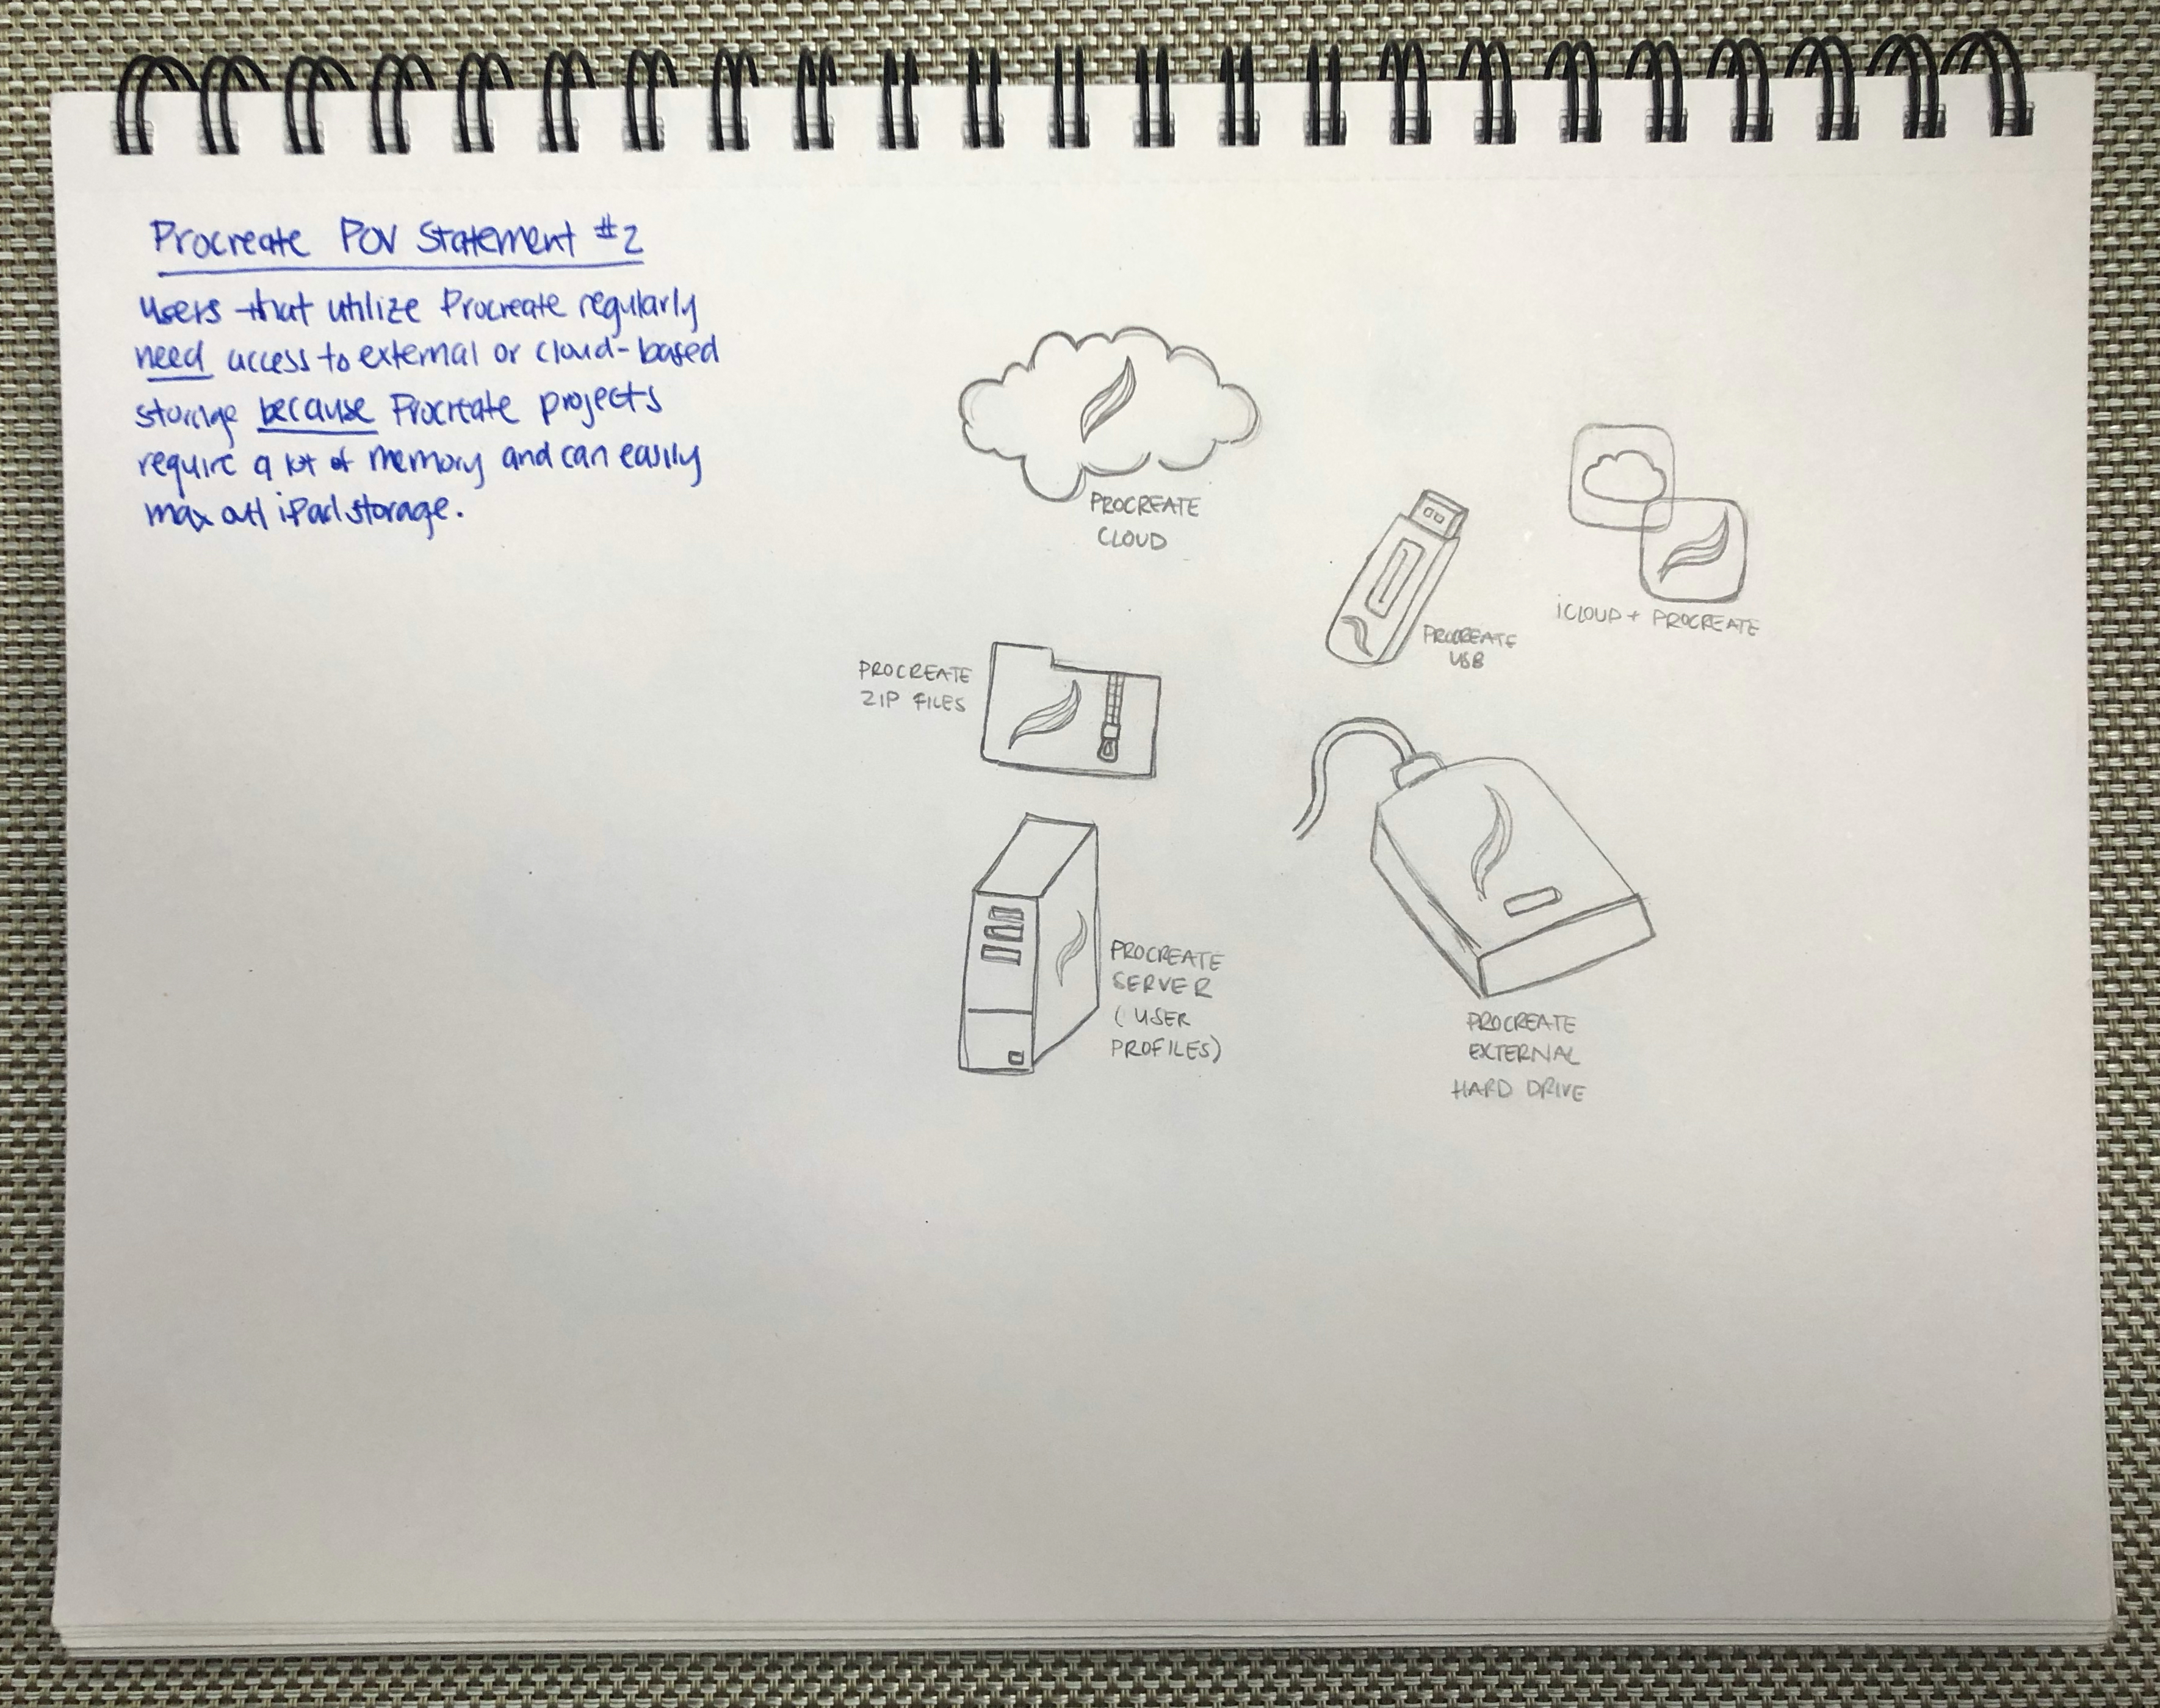 Procreate POV Statement #2
users that utilize Procreate regularly
need access to external or cloud-based
storage because Procreate projects
require a lot of memory and can easily
max out iPad storage.
PROCREATE
CLOUD
PROCREATE
USB
iCLOUD + PROCREATE
PROCREATE
ZIP FILES
PROCREATE
SERVER
(USER
PROFILES)
PROCREATE
EXTERNAL
HARD DRIVE